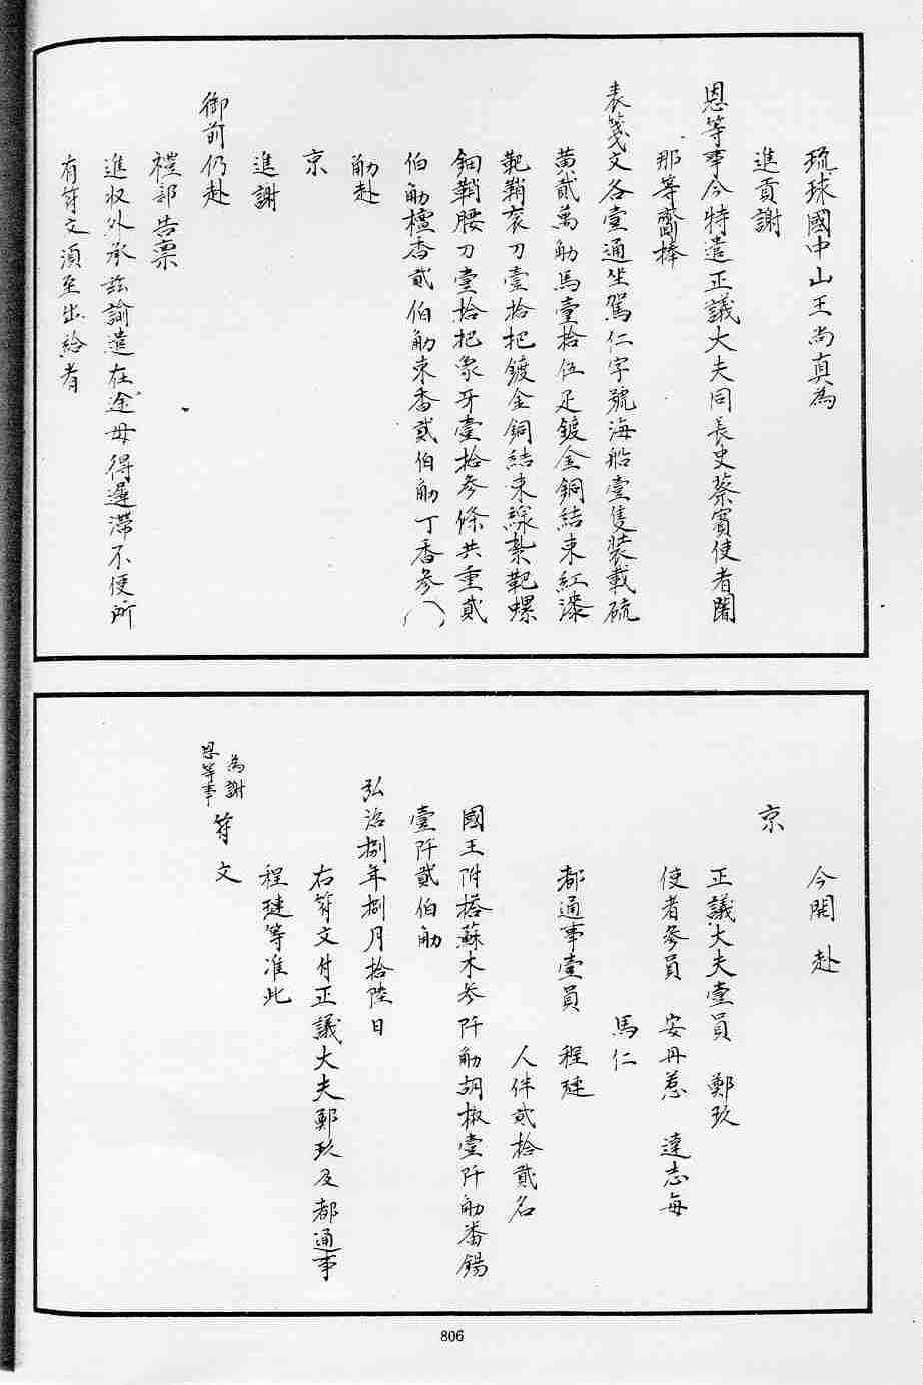 琉球國中山王尚真為
進貢謝
恩等事今特遣正議大夫同長史蔡賓使者闍
那等齎捧
表箋文各壹通坐駕仁字號海船壹隻裝載硫
黄貳萬觔馬壹拾伍疋鍍金銅結束紅漆
靶鞘袞刀壹拾把鍍金銅結束線紮靶螺
鈿鞘腰刀壹拾把象牙壹拾參條共重貳
伯觔檀香貳伯觔束香貳伯觔丁香參八
觔赴
京
進謝
御前仍赴
禮部告稟
進收外承玆諭遣在途毋得遲滯不便所
有符文須至出給者
今開赴
京
正議大夫壹員 鄭玖
使者參員 安丹惹 達志每
馬仁
都通事壹員 程璉
人伴貳拾貳名
國王附搭蘇木參阡觔胡椒壹阡觔番錫
壹阡貳伯觔
弘治捌年捌月拾陸日
右符文付正議大夫鄭玖及都通事
程璉等准此
為謝
恩等事
符文
806